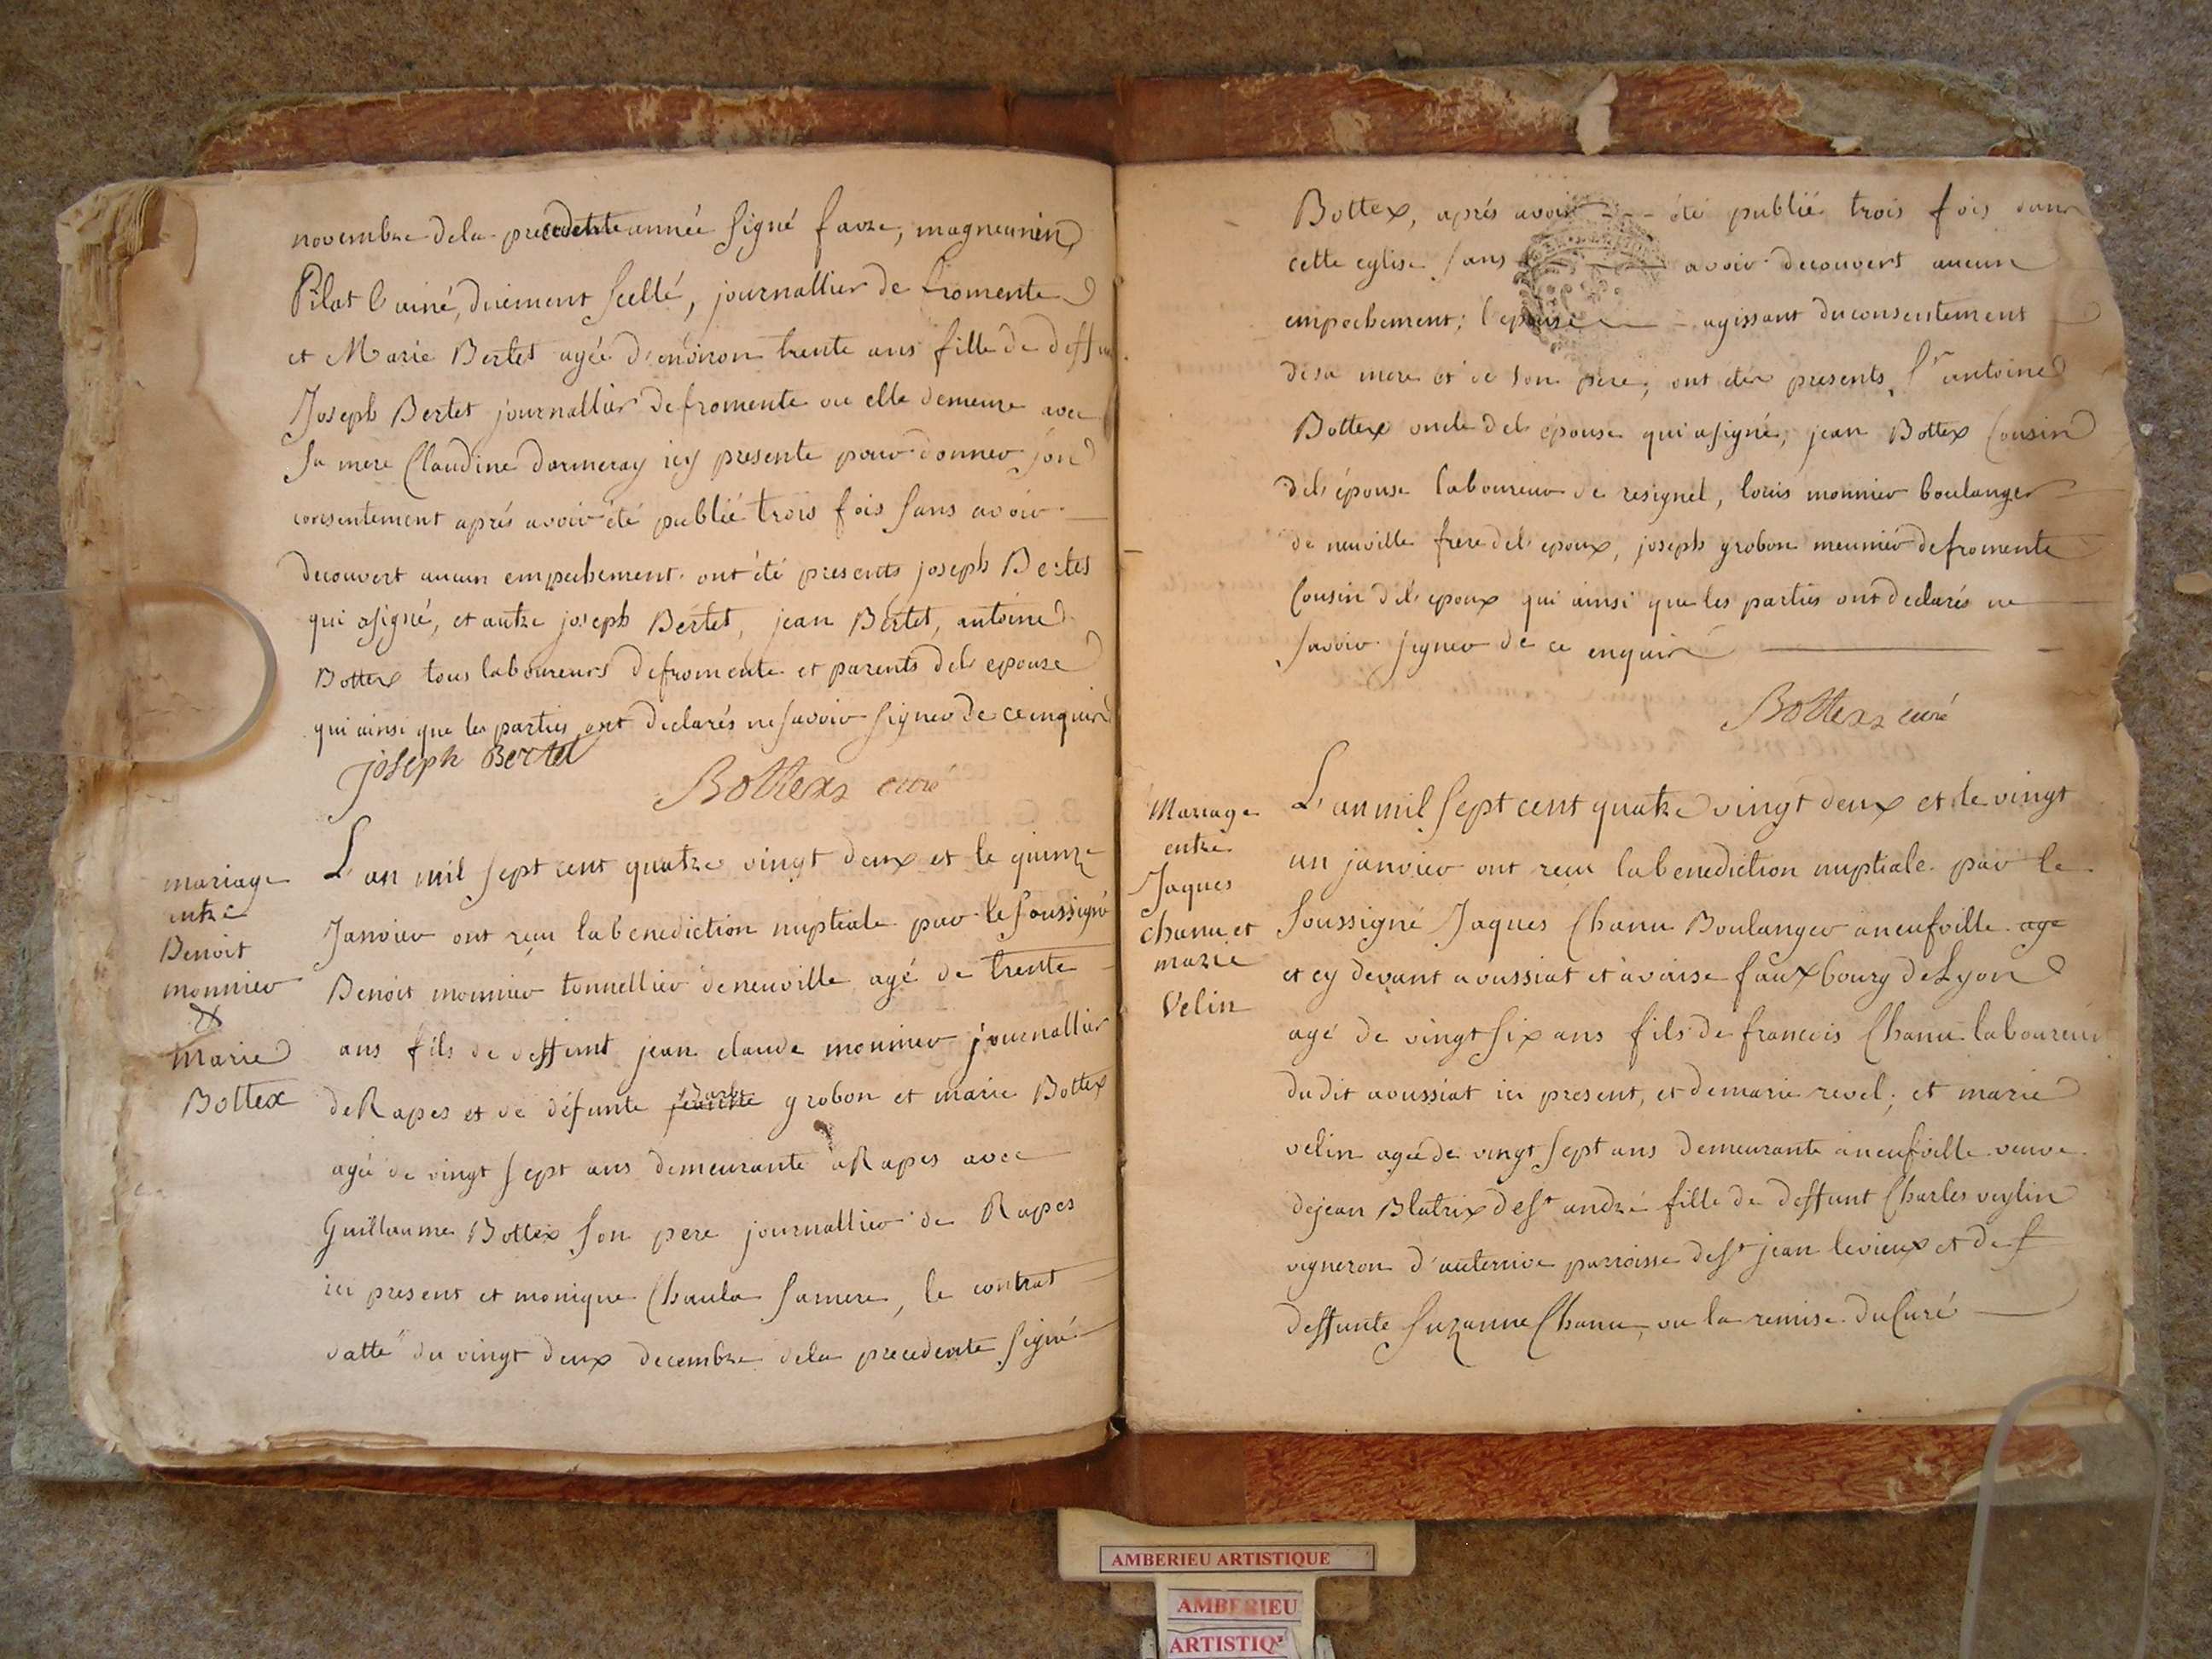 novembre dela precedente année signé favre, magneunin,
Pilat l'ainé, duement scellé, journallier de fromente
et Marie Bertet agée d'environ trente ans fille de deffunt
Joseph Bertet journallier defromente ou elle demeure avec
sa mere Claudine dormeray icy presente pour donner son
consentement aprés avoir été publié trois fois sans avoir
decouvert aucun empechement. ont été presents joseph Bertet
qui asigné, et autre joseph Bertet, jean Bertet, antoine
Bottex tous laboureurs defromente et parents del'epouse
qui ainsi que les parties ont declarés ne savoir signer de ce enquis
joseph Bertet
Bottex curé
mariage
entre
Benoit
monnier
&
marie
Bottex
L'an mil sept cent quatre vingt deux et le quinze
Janvier ont reçu la benediction nuptiale par le soussigné
Benoit monnier tonnellier deneuville agé de trente
ans fils de deffunt jean claude monnier journallier
de Rapes et de défunte Barbe grobon et marie Bottex
agée de vingt sept ans demeurante a Rapes avec
Guillaume Bottex son pere journallier de Rapes
ici present et monique Chaula samere, le contrat
datté du vingt deux decembre dela precedente signé
Bottex, aprés avoir été publié trois fois dans
cette eglise sans avoir decouvert aucun
empechement; l'epouse agissant du consentement
de sa mere et de son pere, ont été presents, Sr antoine
Bottex oncle del'épouse qui asigné, jean Bottex Cousin
del'épouse laboureur de resignel, louis monnier boulanger
de neuville frere del'epoux, joseph grobon meunier defromente
Cousin del'epoux qui ainsi que les parties ont declarés ne
savoir signer de ce enquis
Bottex curé
Mariage
entre
Jaques
chanu et
marie
Velin
L'an mil sept cent quatre vingt deux et le vingt
un janvier ont reçu la benediction nuptiale par le
soussigné Jaques Chanu Boulanger aneufville agé
et cy devant a oussiat et a vaise fauxbourg de Lyon
agé de vingt six ans fils de francois Chanu laboureur
du dit aoussiat ici present, et de marie revel; et marie
velin agée de vingt sept ans demeurante aneufville veuve
dejean Blatrix de st andré fille de deffunt Charles veylin
vigneron d'auterive parroisse de st jean levieux et de
deffunte Suzanne Chanu, vu la remise du Curé
AMBERIEU ARTISTIQUE
AMBERIEU
ARTISTIQ